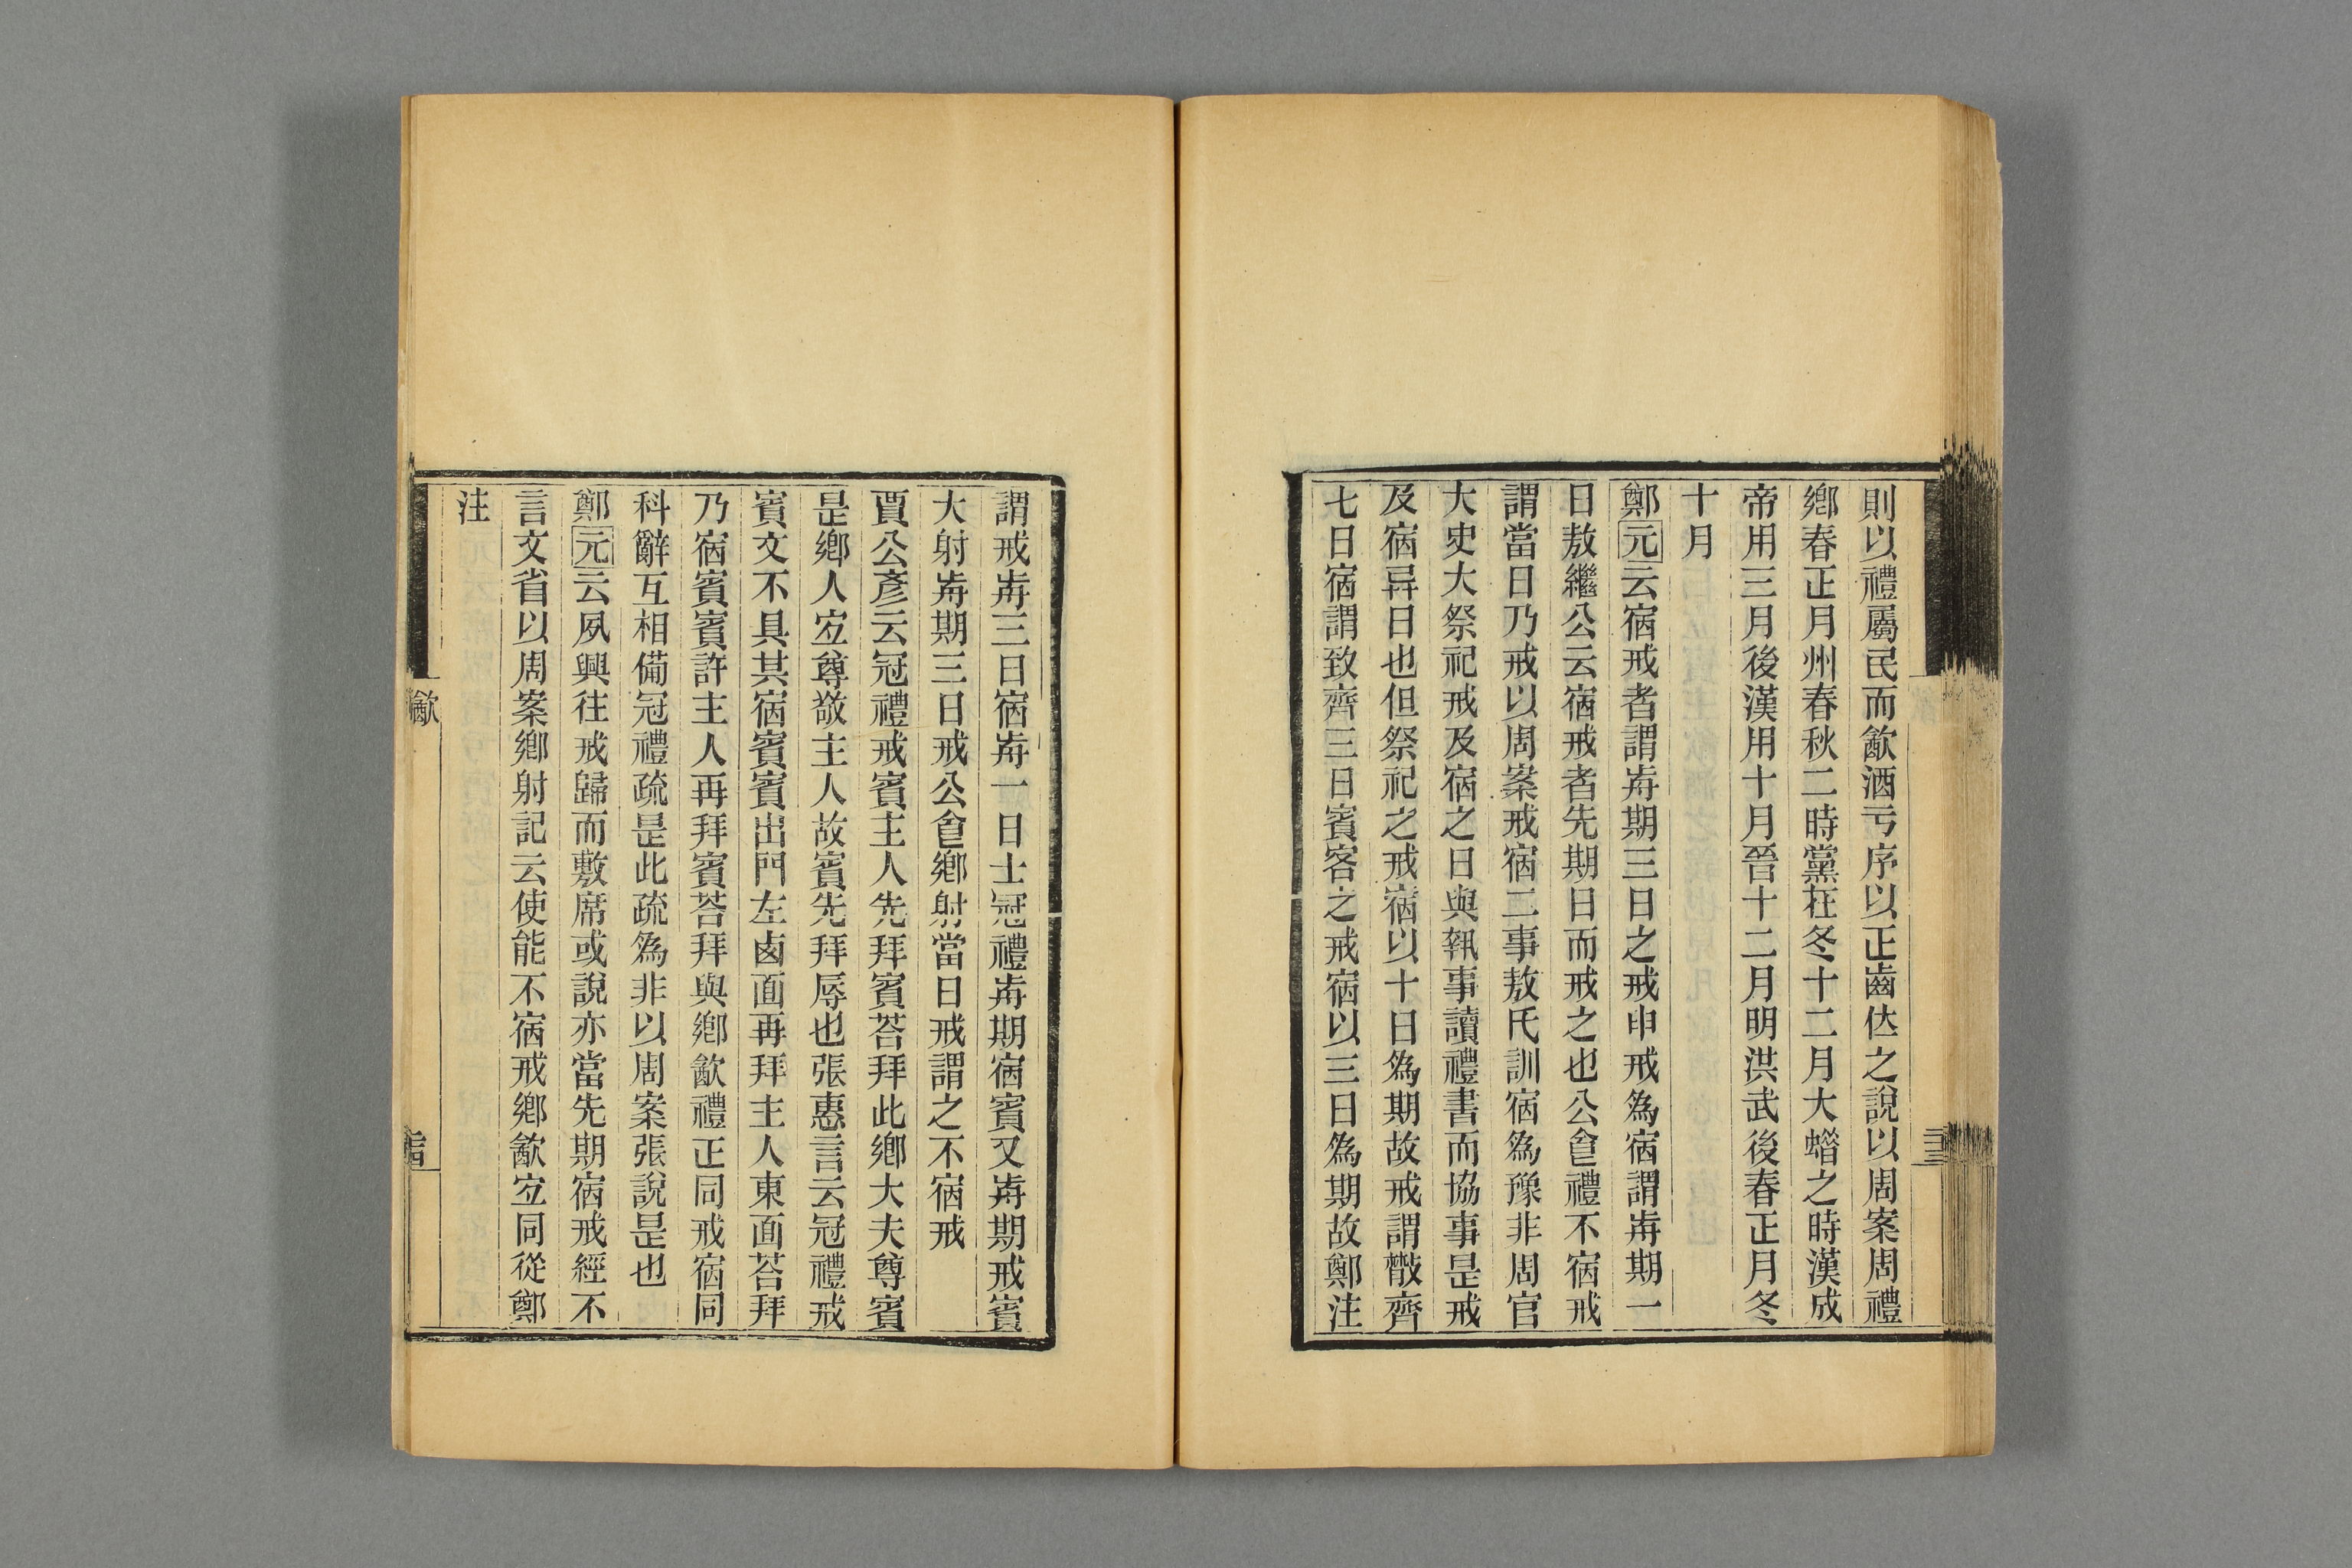 則以禮屬民而歙酒亏序以正齒㑀之說以周案周禮
鄉春正月州春秋二時黨在冬十二月大蜡之時漢成
帝用三月後漢用十月晉十二月明洪武後春正月冬
十月
鄭元云宿戒者謂歬期三日之戒申戒爲宿謂歬期一
日敖繼公云宿戒者先期日而戒之也公㑹禮不宿戒
謂當日乃戒以周案戒宿二事敖氏訓宿爲豫非周官
大史大祭祀戒及宿之日與執事讀禮書而協事是戒
及宿异日也但祭祀之戒宿以十日爲期故戒謂㪚齊
七日宿謂致齊三日賓客之戒宿以三日爲期故鄭注
謂戒歬三日宿歬一日士冠禮歬期宿賓又歬期戒賓
大射歬期三日戒公㑹鄉射當日戒謂之不宿戒
賈公彥云冠禮戒賓主人先拜賓荅拜此鄉大夫尊賓
是鄉人宐尊敬主人故賓先拜辱也張惠言云冠禮戒
賓文不具其宿賓賓出門左卤面再拜主人東面荅拜
乃宿賓賓許主人再拜賓荅拜與鄉歙禮正同戒宿同
科辭互相備冠禮疏是此疏爲非以周案張說是也
鄭元云夙興往戒歸而敷席或說亦當先期宿戒經不
言文省以周案鄉射記云使能不宿戒鄉歙宐同從鄭
注
歙